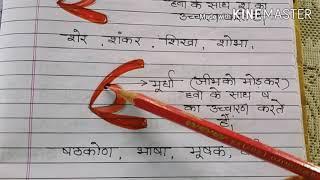 हवा के साथ श का
उच्चारण
Made with
KINEMASTER
शेर, शंकर, शिखा, शोभा,
मूर्धा (जीभ को मोडकर)
हवा के साथ ष
का उच्चारण करते
हैं।
षठकोण, भाषा, मूषक,